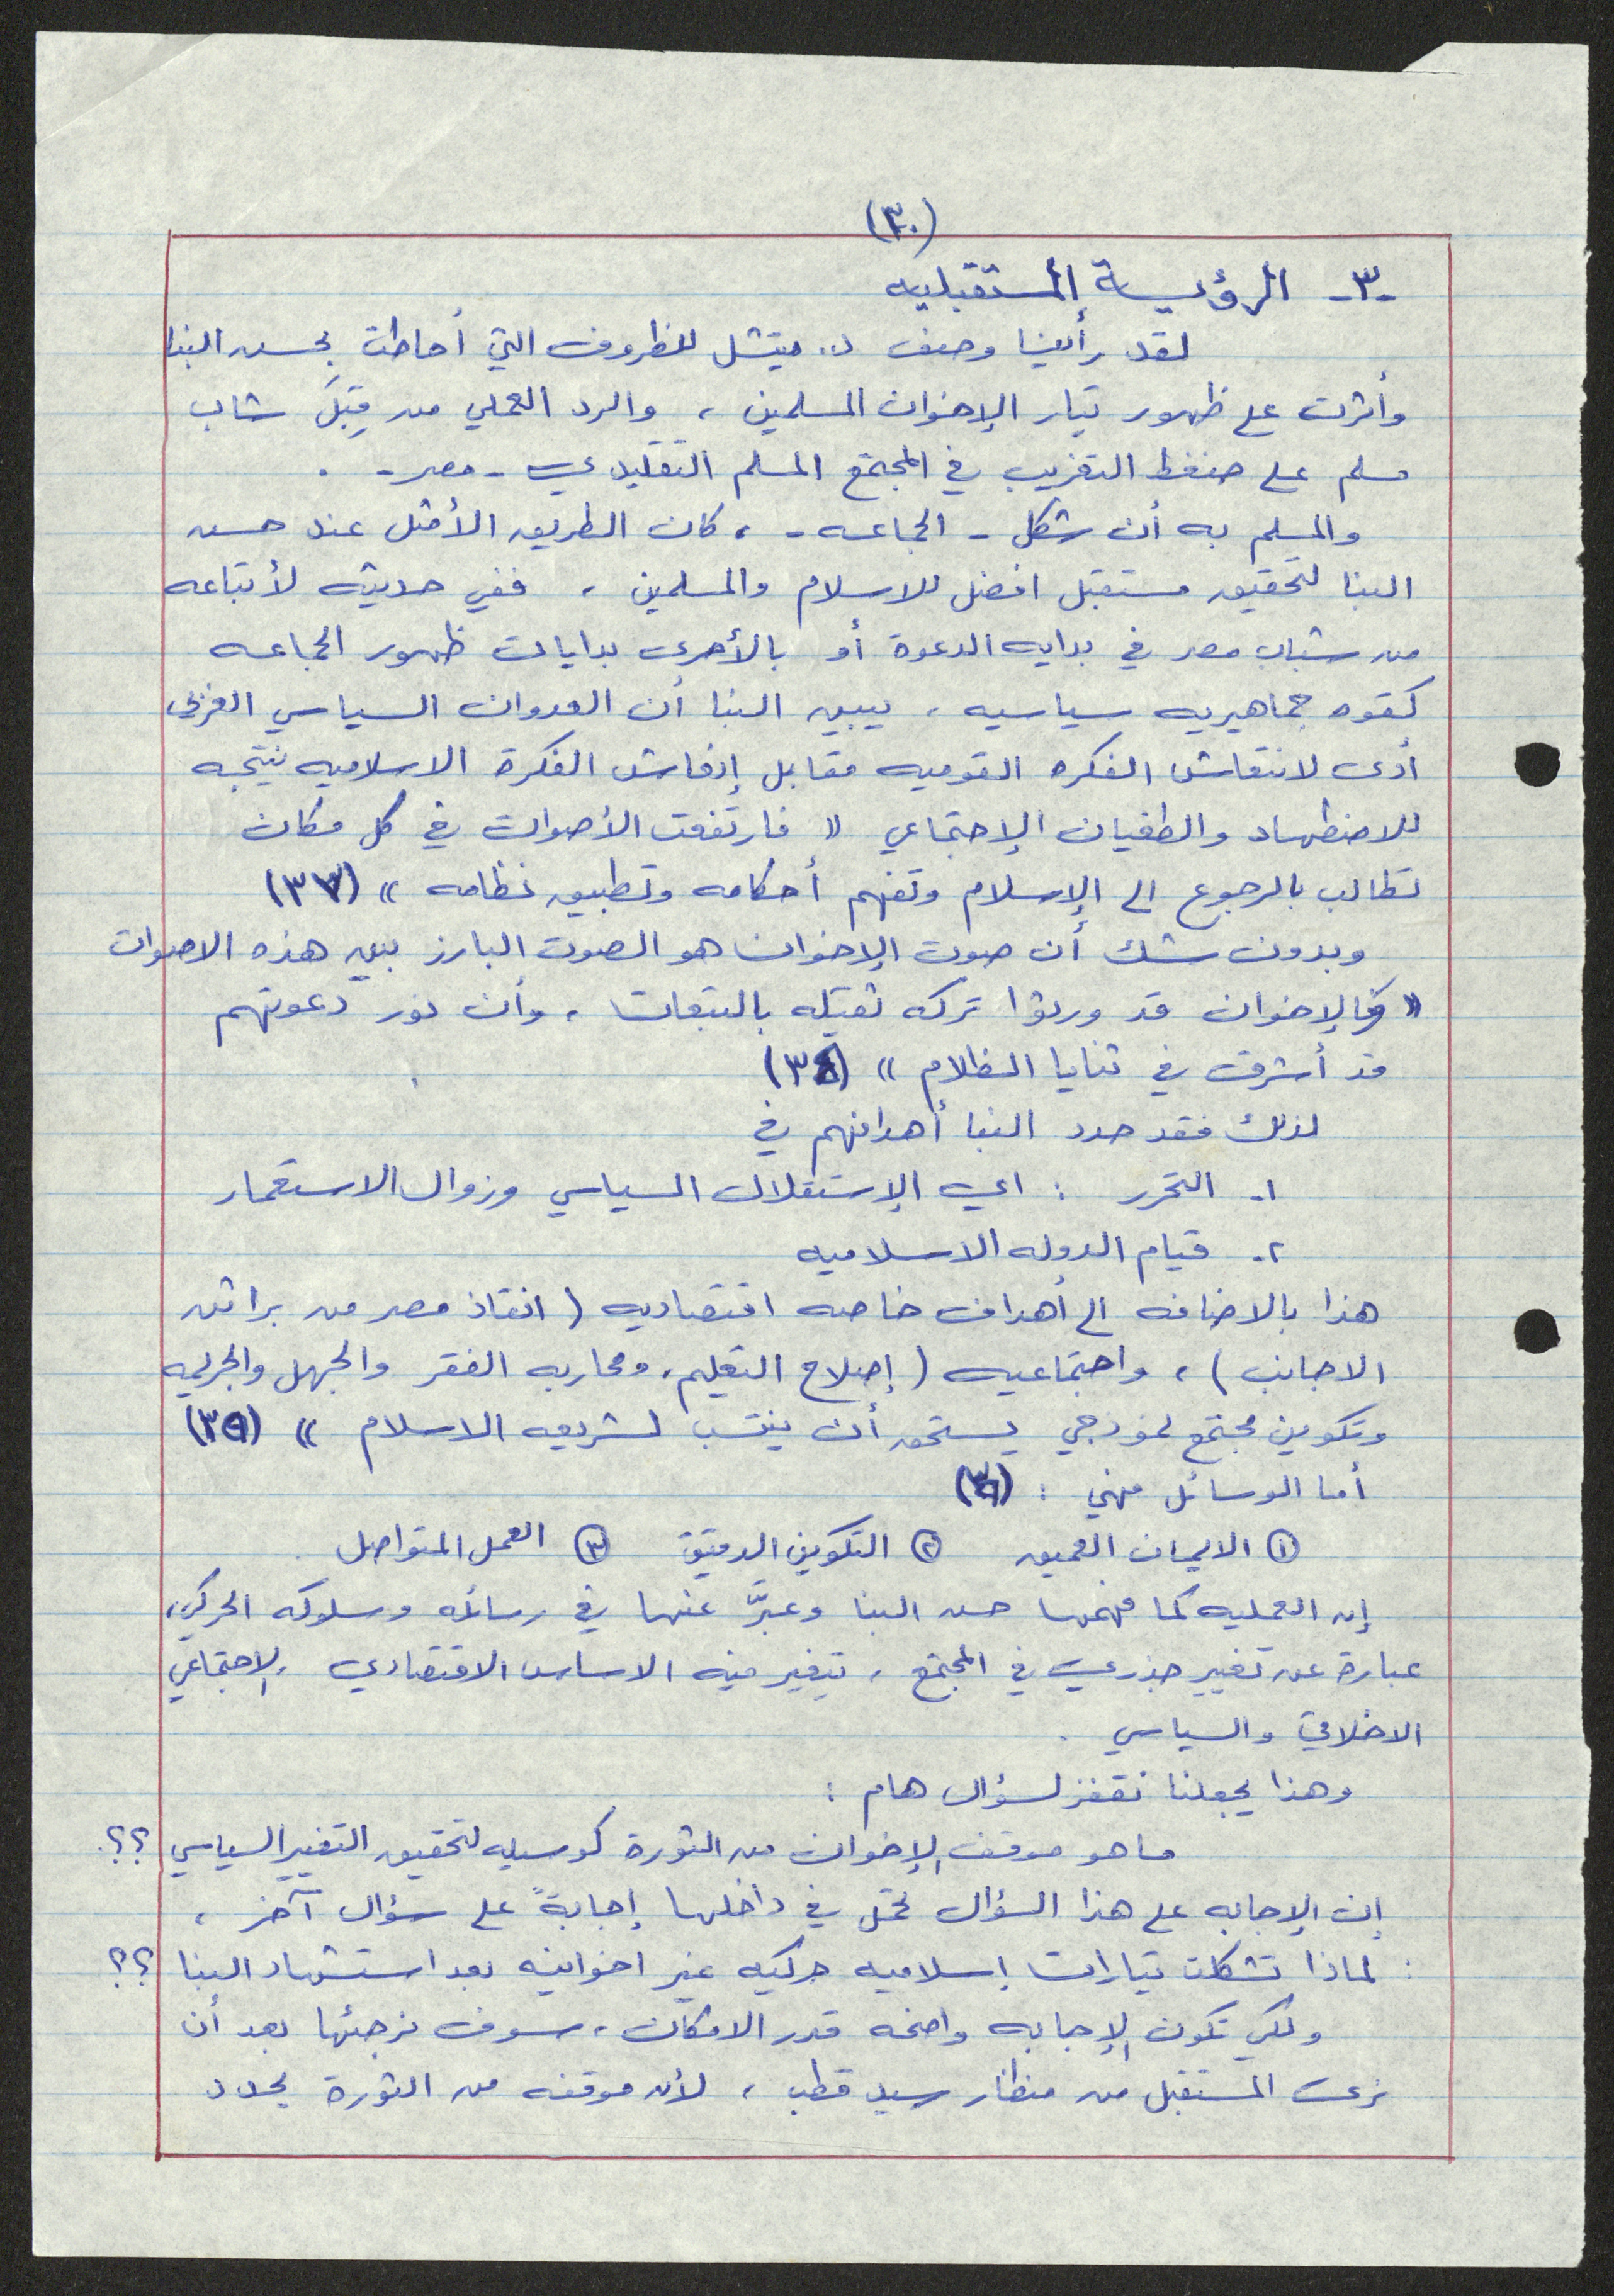 (٣٠)
-٣- الرؤيــة المستقبليه
لقد رأينا وصف د. ميتشل للظروف التي أحاطت بحسن البنا
وأثرت على ظهور تيار الإخوان المسلمين ، والرد العملي من قِبَل شاب
مسلم على ضغط التغريب في المجتمع المسلم التقليدي - مصر - .
والمسلم به أن شكل - الجماعه - ، كان الطريق الأمثل عند حسن
البنا لتحقيق مستقبل افضل للاسلام والمسلمين ، ففي حديثه لأتباعه
من شباب مصر في بدايه الدعوة أو بالأحرى بدايات ظهور الجماعه
كقوه جماهيريه سياسيه ، يبين البنا أن العدوان السياسي الغربي
أدى لانتعاش الفكره القوميه مقابل إنعاش الفكرة الاسلاميه نتيجه
للاضطهاد والطغيان الإجتماعي « فارتفعت الأصوات في كل مكان
تطالب بالرجوع الى الإسلام وتفهم أحكامه وتطبيق نظامه » (٣٧)
وبدون شك أن صوت الإخوان هو الصوت البارز بين هذه الاصوات
« فالإخوان قد ورثوا تركه ثقيله بالتبعات ، وأن نور دعوتهم
قد أشرق في ثنايا الظلام » (٣٨)
لذلك فقد حدد البنا أهدافهم في
١- التحرر : اي الإستقلال السياسي وزوال الاستعمار
٢- قيام الدوله الاسلاميه
هذا بالاضافه الى أهداف خاصه اقتصاديه ( انقاذ مصر من براثن
الاجانب ) ، واجتماعيه ( إصلاح التعليم ، ومحاربه الفقر والجهل والجريمه
وتكوين مجتمع نموذجي يستحق أن ينتسب لشريعه الاسلام » (٣٩)
أما الوسائل فهي :
① الايمان العميق ② التكوين الدقيق ③ العمل المتواصل
إن العمليه كما فهمها حسن البنا وعبَّر عنها في رسائله وسلوكه الحركي ،
عبارة عن تغيير جذري في المجتمع ، يتغير فيه الاساس الاقتصادي ، الإجتماعي
الاخلاقي والسياسي .
وهذا يجعلنا نقفز لسؤال هام :
ما هو موقف الإخوان من الثورة كوسيله لتحقيق التغيير السياسي ؟؟
إن الإجابه على هذا السؤال تحمل في داخلها إجابةً على سؤال آخر ،
: لماذا تشكلت تيارات إسلاميه حركيه غير اخوانيه بعد استشهاد البنا ؟؟
ولكي تكون الإجابه واضحه قدر الامكان ، سوف نرجئها بعد أن
نرى المستقبل من منظار سيد قطب ، لأن موقفه من الثورة يحدد